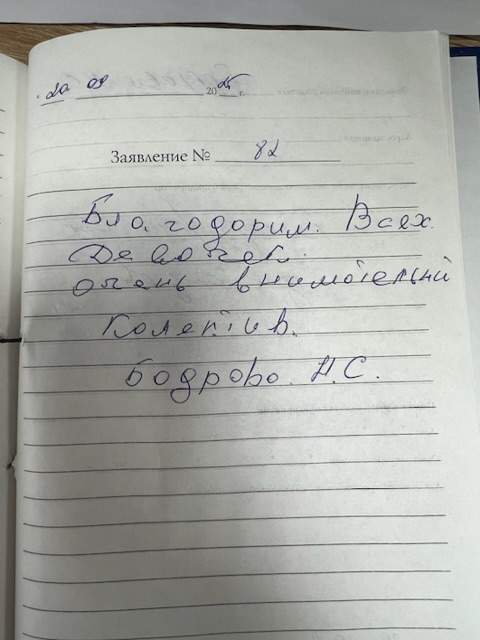 20 09 2025 г.
Заявление № 82
Благодорим. Всех.
Девочек.
очень внимотельний
Колектив.
Бодрово. Н.С.